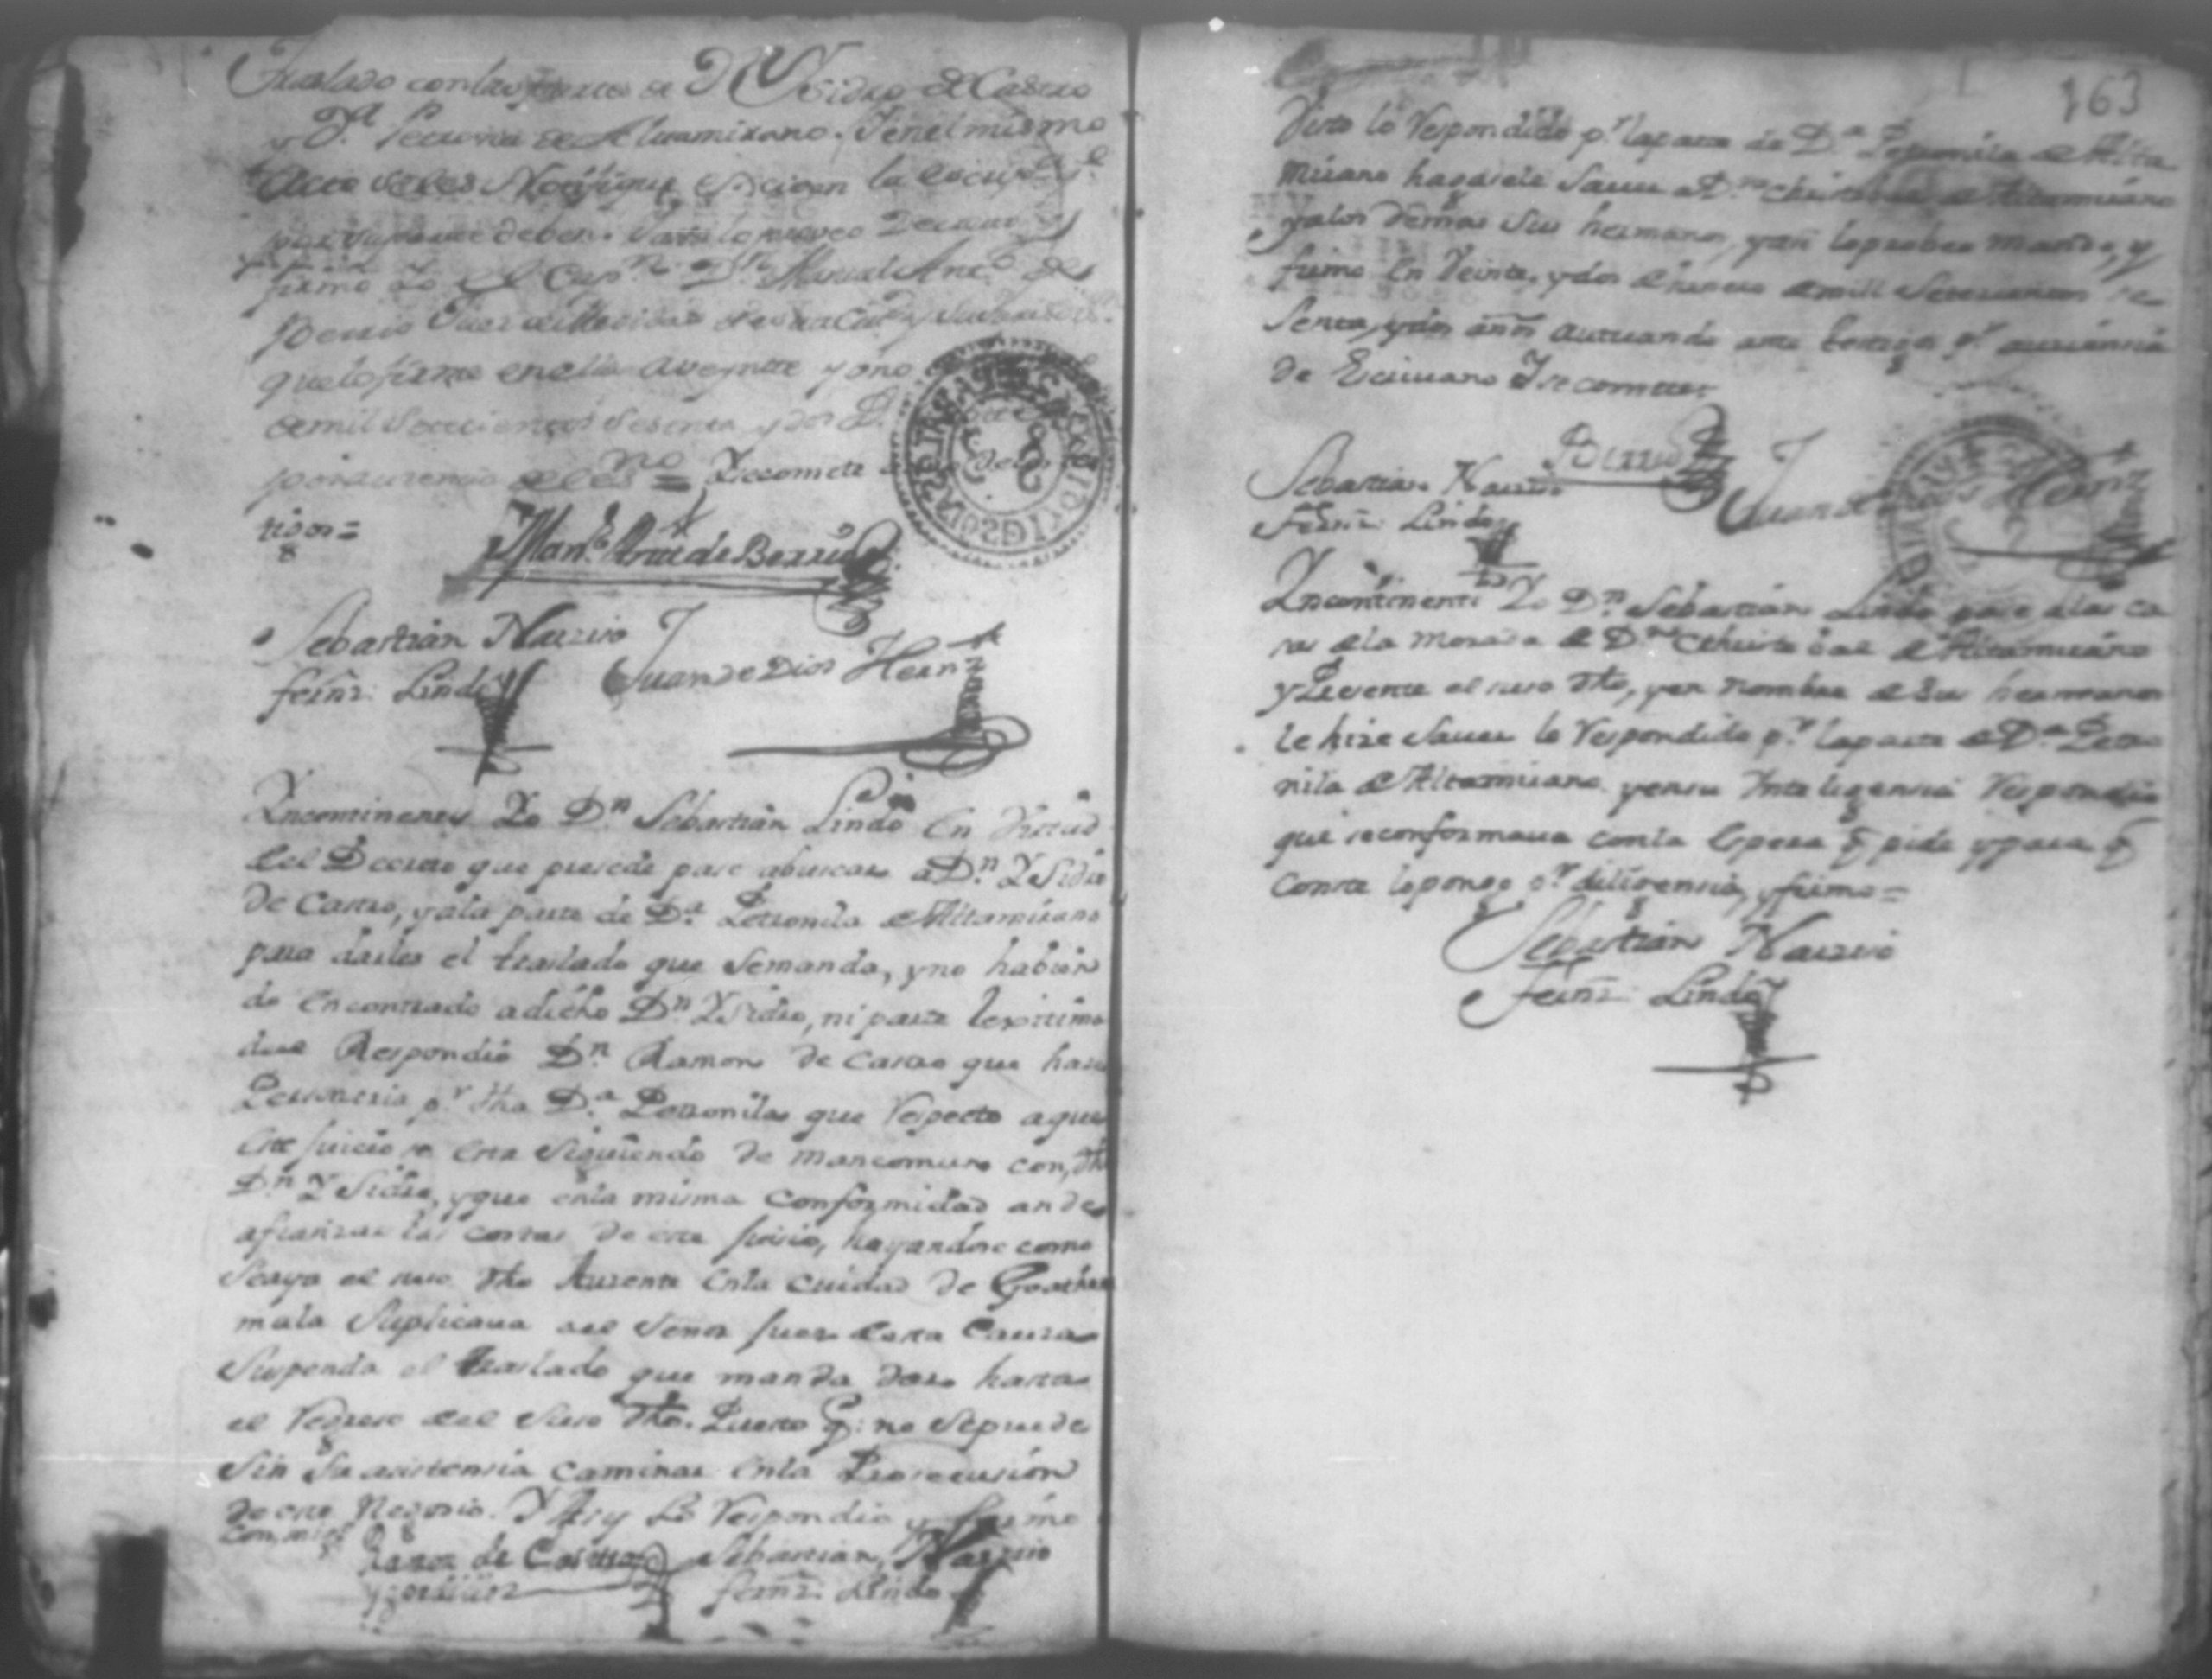 Traslado con las partes de Dn Ysidro de Castro
y Da. Petrona de Altamirano. Y en el mismo
Acto se les Notifique
por su parte deben.
firmo Yo el Capn. Dn. Manuel Anto. de
Berrio Juez
que lo firme en ella a veynte y uno
de mil setecientos sesenta y dos
por ausencia del esno = Y se comete
tidor=
Manl. Antt de Berrio
Sebastian Narziso
fernz. Lindo
Juan de Dios Hernz
Yncontinenty Yo Dn Sebastian Lindo En Virtud
del Decreto que presede pase abuscar a Dn. Ysidro
de Castro, y ala parte de Da. Petronila de Altamirano
para darles el traslado que semanda, y no habien
do encontrado adicho Dn. Ysidro, ni parte lexitima
Respondio Dn. Ramon de Castro que hase
Personeria pr. dha Da. Petronila que Respecto aque
este juicio se esta siguiendo de mancomun con, dho
Dn Ysidro, y que enla misma Conformidad ande
afianzar las costas de este juisio, hayandose como
seaya el suso dho Ausente enla ciudad de Goathe
mala Suplicava ael Señor Juez desta Causa
Suspenda el traslado que manda dar hasta
el Regreso del suso dho. Puesto q: no sepuede
sin su asistensia caminar enla Prosecusion
de este Negosio. Y Asy Lo Respondio y firmo
conmigo
Ramon de Castro
Sebastian Narziso
fernz. Lindo
163
Visto lo Respondido pr. laparte de Da. Petronila de Alta
mirano hagasele Saver a Dn. Christobal de Altamirano
y alos demas sus hermanos, y asi loprobeo mando, y
firmo En Veinte, y dos de henero demill setesientos se
senta, y dos años autuando ante testigos pr. ausensia
de Escrivano Y se comette
Berrio
Sebastian Narziso
fernz. Lindo
Juan de Hernz
Yncontinenti Yo Dn. Sebastian Lindo pase alas ca
sas dela Morada de Dn Christobal de Altamirano
y Presente el suso dho, y en nombre de sus hermanos
le hize Saver lo Respondido pr. laparte de Da. Petro
nila de Altamirano y ensu Ynteligensia Respondio
que seconformava conla Espera q pide y para q
Conste lopongo pr. diligensia, y firmo=
Sebastian Narziso
fernz. Lindo